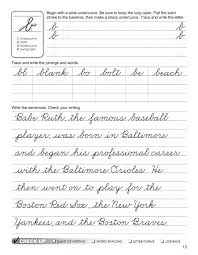 Begin with a slide undercurve. Be sure to keep the loop open. Pull the slant
stroke to the baseline, then make a sharp undercurve. Trace and write the letter.
b
b b
b b
Trace and write the joinings and words.
bl blank bo bolt be beach
Write the sentences. Check your writing.
Babe Ruth, the famous baseball
player, was born in Baltimore
and began his professional career
with the Baltimore Orioles. He
then went on to play for the
Boston Red Sox, the New York
Yankees, and the Boston Braves.
CHECK-UP SLANT OF WRITING WORD SPACING LETTER FORMS JOININGS